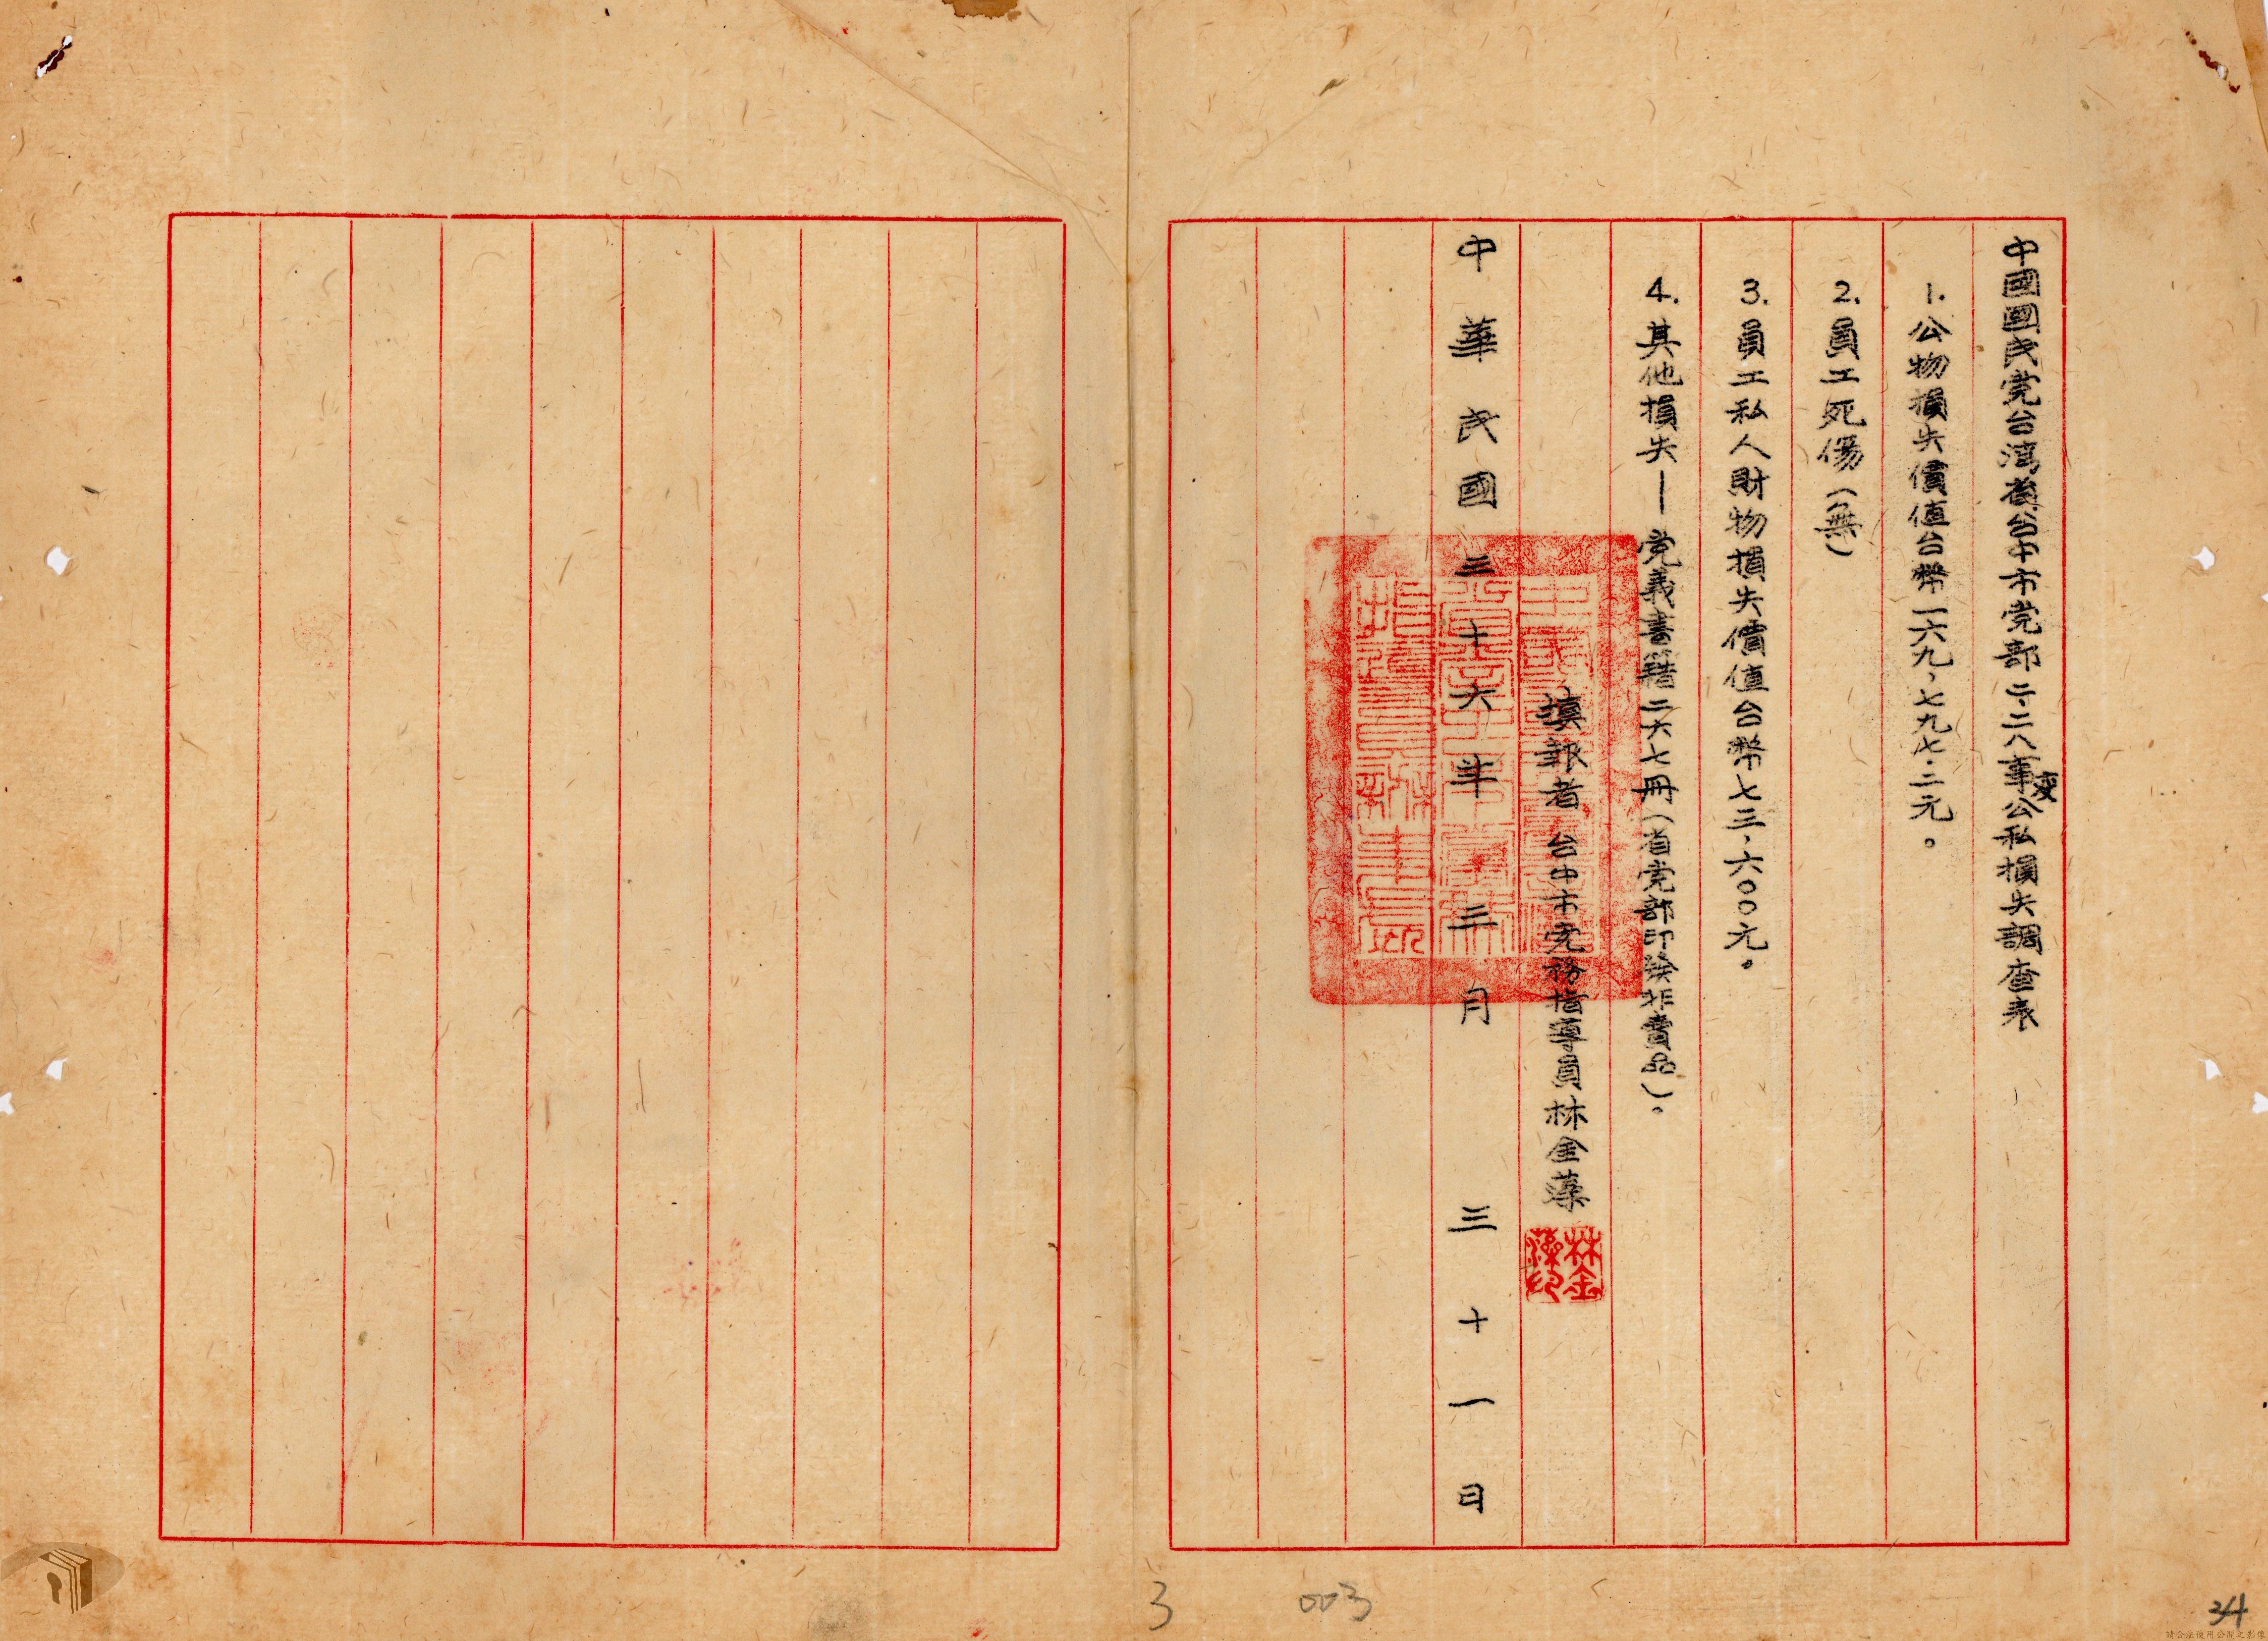 中國國民党台湾省台中市党部二·二八事変公私損失調查表
1.公物損失價值台幣一六九、七九七·二元。
2.員工死傷(無)
3.員工私人財物損失價值台幣七三、六〇〇元。
4.其他損失—党義書籍二六七冊(省党部印發非賣品)。
填報者 台中市党務指導員林金藻
林金藻印
中華民國三十六年三月三十一日
3
003
34
請合法使用公開之影像